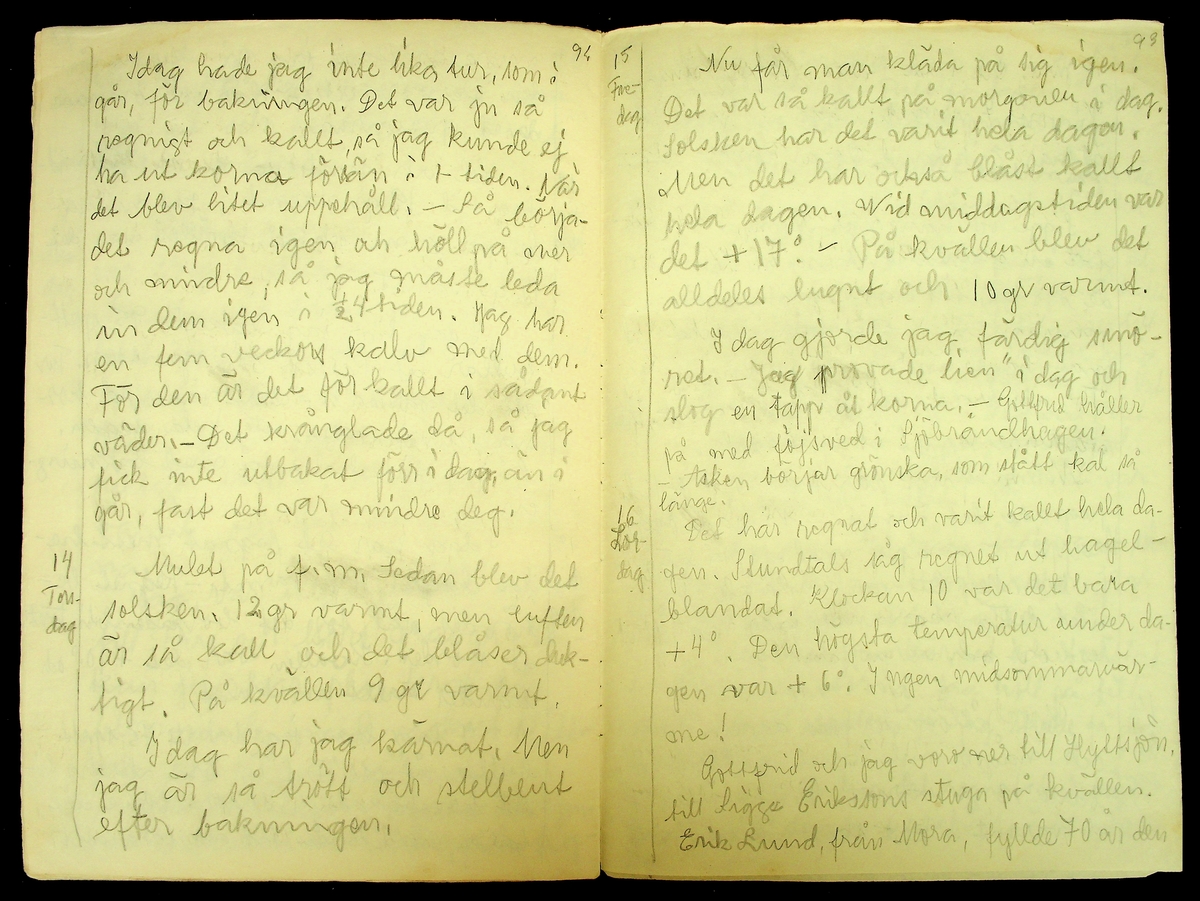 94
Idag hade jag inte lika tur, som i
går, för bakningen. Det var ju så
regnigt och kallt, så jag kunde ej
ha ut korna förrän i 1-tiden. När
det blev litet uppehåll. – Så börja-
det regna igen och höll på mer
och mindre, så jag måste leda
in dem igen i ½4 tiden. Jag har
en fem veckors kalv med dem.
För den är det för kallt i sådant
väder. – Det krånglade då, så jag
fick inte utbakat förr i dag, än i
går, fast det var mindre deg.
14
Tors-
dag
Mulet på f.m. Sedan blev det
solsken. 12 gr varmt, men luften
är så kall och det blåser duk-
tigt. På kvällen 9 gr varmt.
Idag har jag kärnat. Men
jag är så trött och stelbent
efter bakningen.
93
15
Fre-
dag
Nu får man kläda på sig igen.
Det var så kallt på morgonen i dag.
Solsken har det varit hela dagen.
Men det har också blåst kallt
hela dagen. Wid middagstiden var
det +17°. – På kvällen blev det
alldeles lugnt och 10 gr varmt.
I dag gjorde jag färdig smö-
ret. – Jag provade lien" i dag och
slog en tapp åt korna. – Gottfrid håller
på med föjsved i Sjöbrandhagen.
– Asken börjar grönska, som stått kal så
länge.
16
Lör-
dag
Det har regnat och varit kallt hela da-
gen. Stundtals såg regnet ut hagel-
blandat. Klockan 10 var det bara
+4°. Den högsta temperatur under da-
gen var + 6°. Ingen midsommarvär-
me!
Gottfrid och jag voro ner till Hyltsjön,
till Sigge Erikssons stuga på kvällen.
Erik Lund, från Mora, fyllde 70 år den